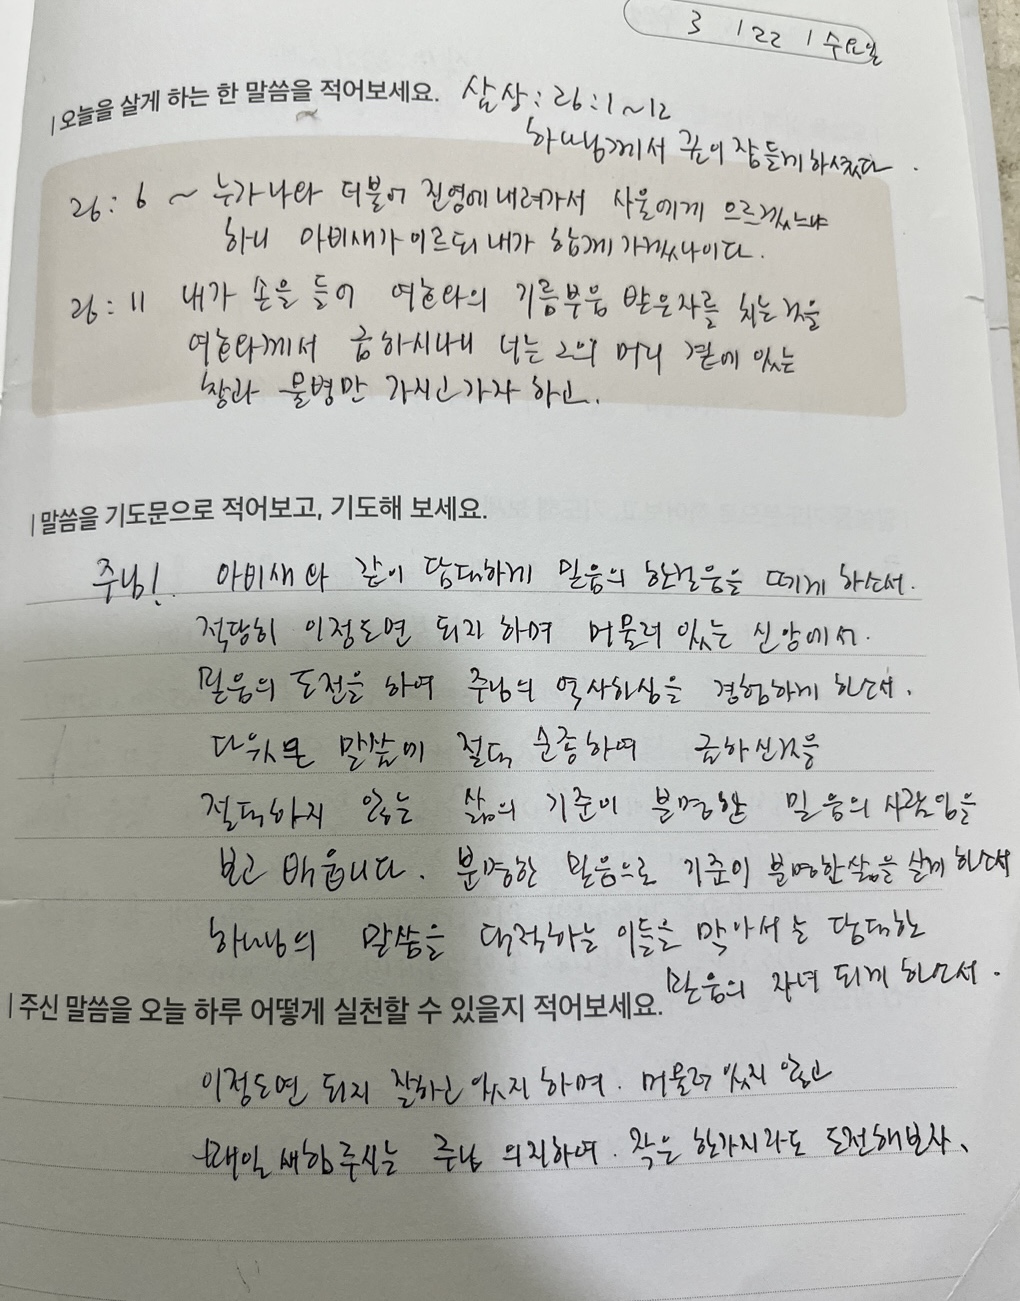 3 / 22 / 수요일
오늘을 살게 하는 한 말씀을 적어보세요. 삼상: 26:1~12
하나님께서 깊이 잠들게 하셨다.
26: 6 ~ 누가 나와 더불어 진영에 내려가서 사울에게 으르겠느냐
하니 아비새가 이르되 내가 함께 가겠나이다.
26: 11 내가 손을 들어 여호와의 기름부음 받은자를 치는것을
여호와께서 금하시나니 너는 그의 머리 곁에 있는
창과 물병만 가지고 가자 하고.
말씀을 기도문으로 적어보고, 기도해 보세요.
주님! 아비새와 같이 담대하게 믿음의 한걸음을 떼게 하소서.
적당히 이정도면 되지 하며 머물러 있는 신앙에서.
믿음의 도전을 하여 주님의 역사하심을 경험하게 하소서.
다윗은 말씀에 절대 순종하여 금하신것을
절대하지 않는 삶의 기준이 분명한 믿음의 사람임을
보고 배웁니다. 분명한 믿음으로 기준이 분명한삶을 살게 하소서
하나님의 말씀을 대적하는 이들을 막아서는 담대한
믿음의 자녀 되게 하소서.
주신 말씀을 오늘 하루 어떻게 실천할 수 있을지 적어보세요.
이정도면 되지 잘하고 있지 하며. 머물러 있지 않고
매일 새힘주시는 주님 의지하여. 작은 한가지라도 도전해보자.